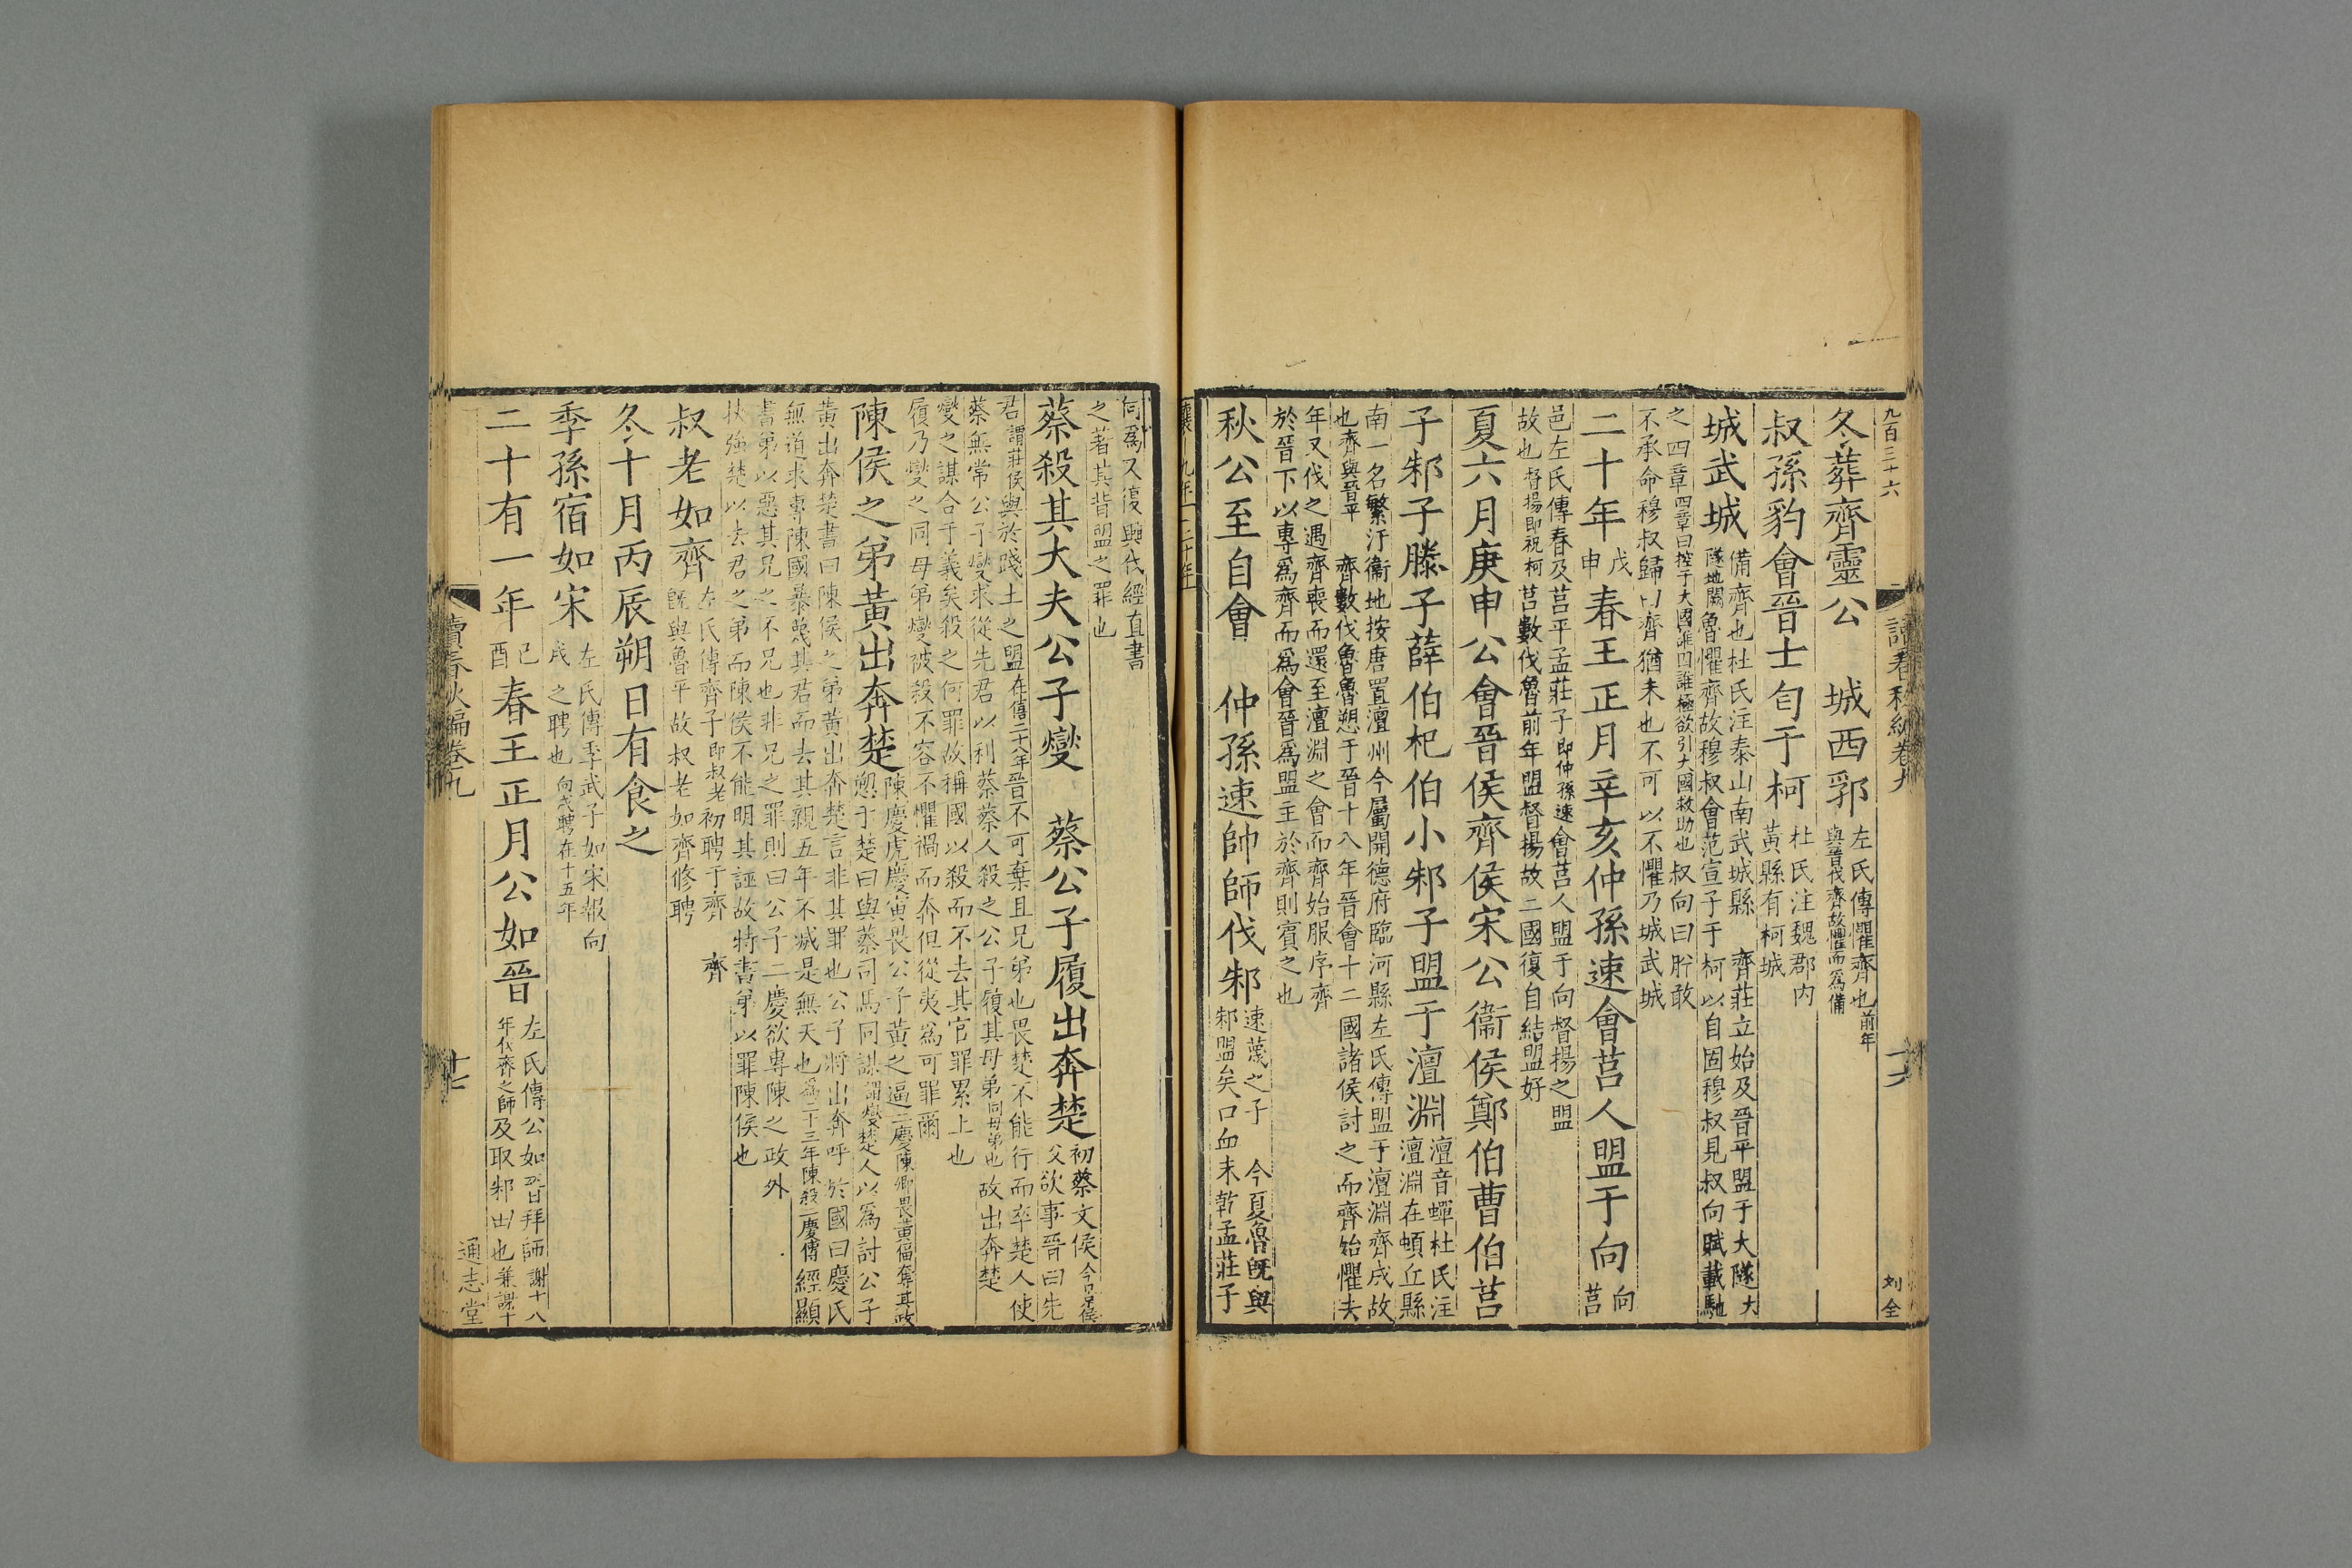 九百三十六
讀春秋編卷九
十六
刘全
冬葬齊靈公　城西郛左氏傳懼齊也前年
與晉伐齊故懼而爲備
叔孫豹會晉士匄于柯杜氏注魏郡內
黃縣有柯城
城武城備齊也杜氏注泰山南武城縣　齊莊立始及晉平盟于大隧大
隧地闕魯懼齊故穆叔會范宣子于柯以自固穆叔見叔向賦載馳
之四章四章曰控于大國誰因誰極欲引大國救助也叔向曰肸敢
不承命穆叔歸曰齊猶未也不可以不懼乃城武城
二十年戊申春王正月辛亥仲孫速會莒人盟于向向莒
邑左氏傳春及莒平孟莊子即仲孫速會莒人盟于向督揚之盟
故也督揚即祝柯莒數伐魯前年盟督揚故二國復自結盟好
夏六月庚申公會晉侯齊侯宋公衞侯鄭伯曹伯莒
子邾子滕子薛伯杞伯小邾子盟于澶淵澶音蟬杜氏注
澶淵在頓丘縣
南一名繁汙衞地按唐置澶州今屬開德府臨河縣左氏傳盟于澶淵齊成故
也齊與晉平　齊數伐魯魯愬于晉十八年晉會十二國諸侯討之而齊始懼夫
年又伐之遇齊喪而還至澶淵之會而齊始服序齊
於晉下以專爲齊而爲會晉爲盟主於齊則賓之也
秋公至自會　仲孫速帥師伐邾速蔑之子　今夏魯旣與
邾盟矣口血未乾孟莊子
何爲又復興伐經直書
之著其背盟之罪也
蔡殺其大夫公子燮　蔡公子履出奔楚初蔡文侯今景侯
父欲事晉曰先
君謂莊侯與於踐土之盟在僖二十八年晉不可棄且兄弟也畏楚不能行而卒楚人使
蔡無常公子燮求從先君以利蔡蔡人殺之公子履其母弟同母弟也故出奔楚
燮之謀合于義矣殺之何罪故稱國以殺而不去其官罪累上也
履乃燮之同母弟燮被殺不容不懼禍而奔但從夷爲可罪爾
陳侯之弟黃出奔楚陳慶虎慶寅畏公子黃之逼二慶陳卿畏黃偪奪其政
愬于楚曰與蔡司馬同謀謂燮楚人以爲討公子
黃出奔楚書曰陳侯之弟黃出奔楚言非其罪也公子將出奔呼於國曰慶氏
無道求專陳國暴蔑其君而去其親五年不滅是無天也爲二十三年陳殺二慶傳經顯
書弟以惡其兄之不兄也非兄之罪則曰公子二慶欲專陳之政外
扶強楚以去君之弟而陳侯不能明其誣故特書弟以罪陳侯也
叔老如齊左氏傳齊子即叔老初聘于齊　齊
旣與魯平故叔老如齊修聘
冬十月丙辰朔日有食之
季孫宿如宋左氏傳季武子如宋報向
戌之聘也向戌聘在十五年
二十有一年己酉春王正月公如晉左氏傳公如晉拜師謝十八
年伐齊之師及取邾田也兼謝十
讀春秋編卷九
十七
通志堂